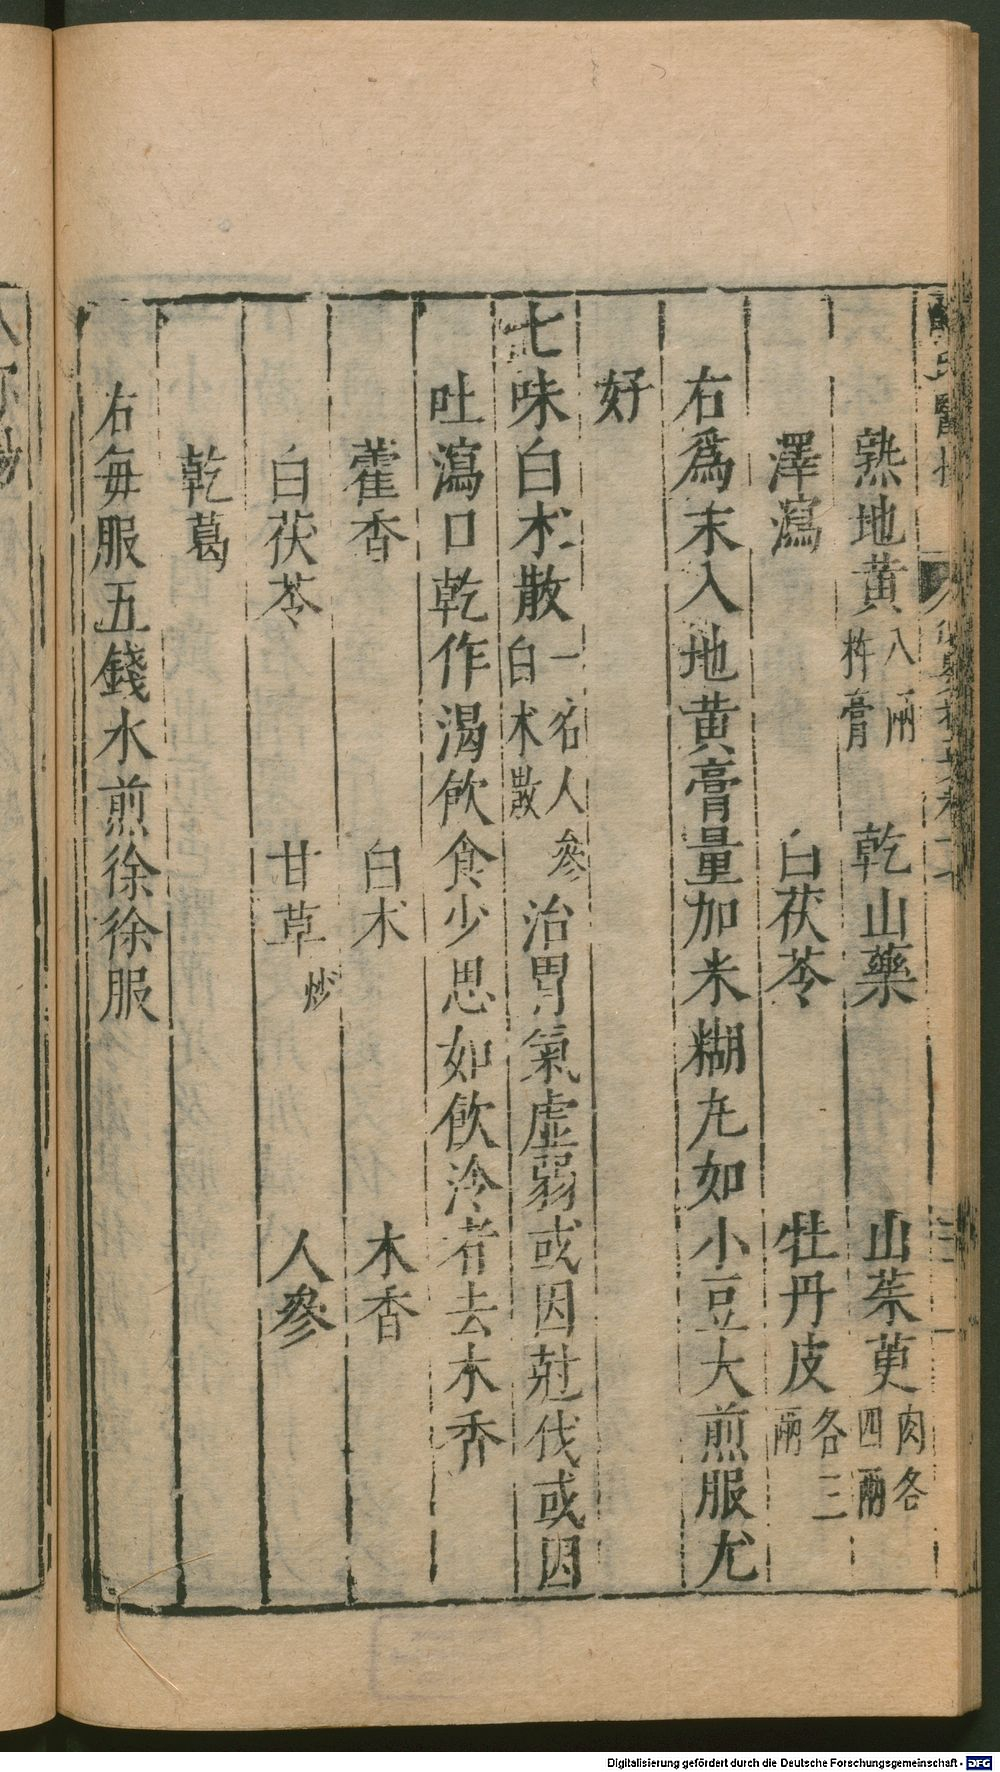 熟地黄八兩杵膏 乾山藥 山茱萸肉各四兩
澤瀉 白茯苓 牡丹皮各三兩
右爲末入地黄膏量加米糊丸如小豆大煎服尤
好
七味白术散一名人參白术散治胃氣虚弱或因尅伐或因
吐瀉口乾作渴飲食少思如飲冷者去木香
藿香 白术 木香
白茯苓 甘草炒 人參
乾葛
右每服五錢水煎徐徐服
Digitalisierung gefördert durch die Deutsche Forschungsgemeinschaft - DFG